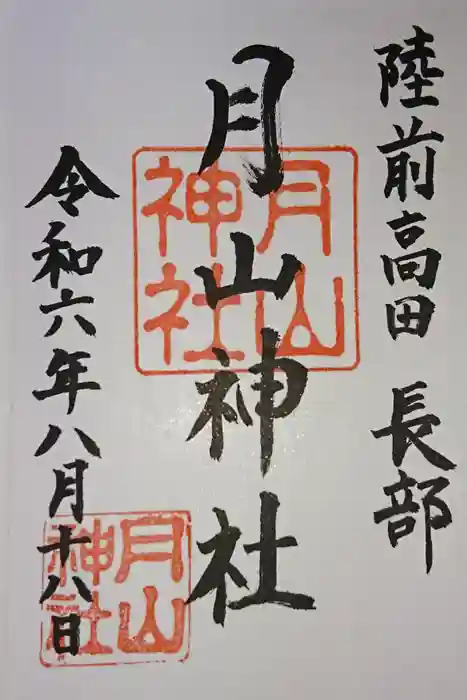 陸前高田 長部
月山神社
月山
神社
令和六年八月十八日
月山
神社